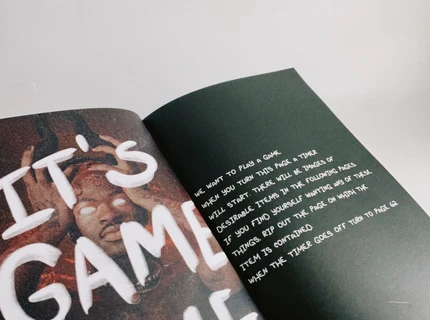 IT'S
GAME
WE WANT TO PLAY A GAME
WHEN YOU TURN THIS PAGE A TIMER
WILL START. THERE WILL BE IMAGES OF
DESIRABLE ITEMS IN THE FOLLOWING PAGES
IF YOU FIND YOURSELF WANTING ANY OF THESE
THINGS. RIP OUT THE PAGE ON WHICH THE
ITEM IS CONTAINED
WHEN THE TIMER GOES OFF TURN TO PAGE 62